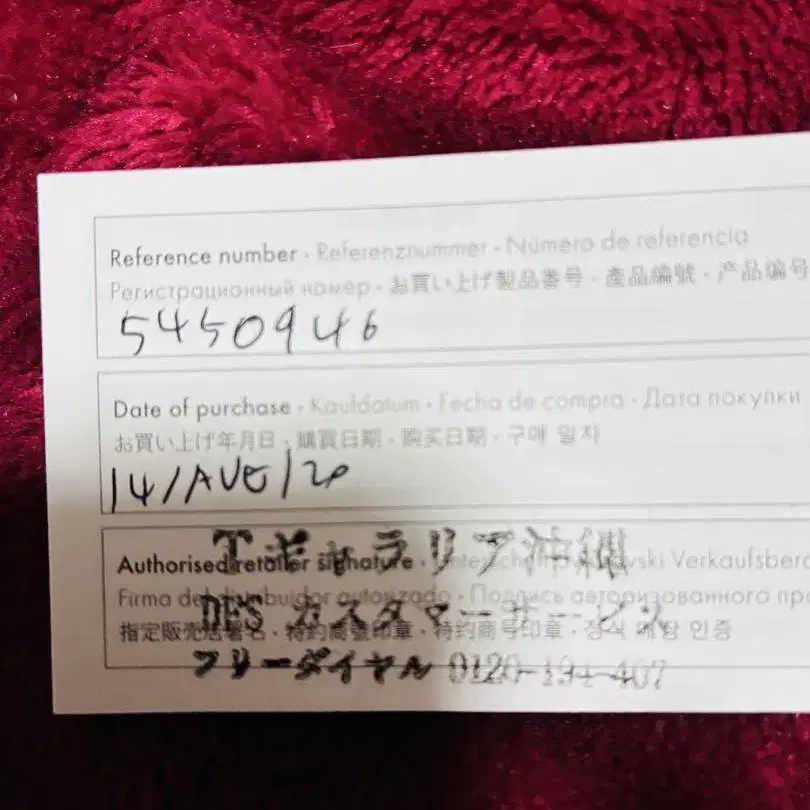 Reference number · Referenznummer · Número de referencia
Регистрационный номер · お買い上げ製品番号 · 產品編號 · 产品编号
5450946
Date of purchase · Kaufdatum · Fecha de compra · Дата покупки
お買い上げ年月日 · 購買日期 · 购买日期 · 구매 일자
14/AUG/20
Tギャラリア沖縄
Authorised retailer signature ·
Firma del distribuidor autorizado · Подпись авторизованного
DFS カスタマーサービス
指定販売店署名 · 特約商號印章 · 特约商号印章 · 정식 매장 인증
フリーダイヤル 0120-194-407